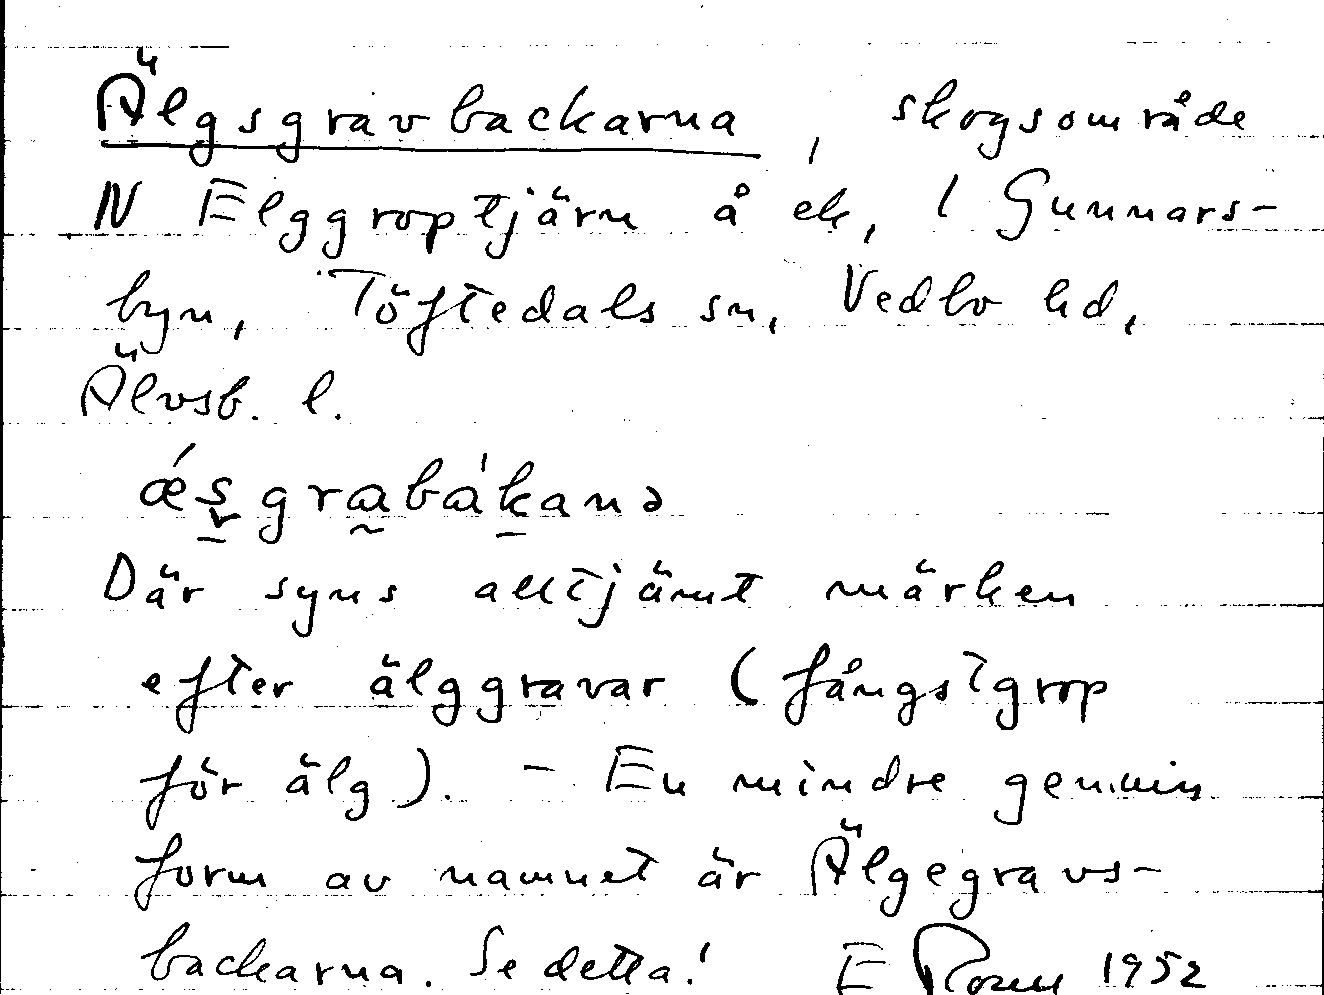 Älgsgravbackarna, skogsområde
N Elggroptjärn å ek, i Gunnars-
byn, Töftedals sn, Vedbo hd,
Älvsb. l.
ǽs̱grabákanə
Där syns alltjämt märken
efter älggravar (fångstgrop
för älg). - En mindre genuin
form av namnet är Älgegravs-
backarna. Se detta! E 1952